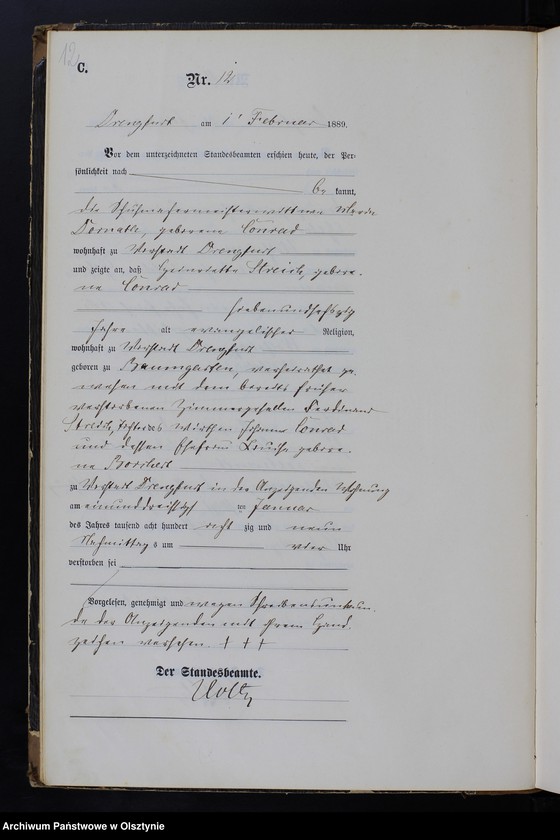 12
C.
Nr. 12
Drengfurt am 1ten Februar 1889.
Vor dem unterzeichneten Standesbeamten erschien heute, der Per-
sönlichkeit nach
be kannt,
die Schuhmachermeisterwittwe Maria
geborene Conrad
wohnhaft zu Vorstadt Drengfurt
und zeigte an, daß Henriette Streich, gebore-
ne Conrad
siebenundsechszig
Jahre alt evangelischer Religion,
wohnhaft zu Vorstadt Drengfurt
geboren zu Baumgarten, verheirathet ge-
wesen mit dem bereits früher
verstorbenen Zimmergesellen Ferdinand
Streich, Tochter des Wirthen Johann Conrad
und dessen Ehefrau Louise gebore-
ne
zu Vorstadt Drengfurt in der Anzeigenden Wohnung
am einunddreißigsten Januar
des Jahres tausend acht hundert acht zig und neun
Nachmittags um vier Uhr
verstorben sei
Vorgelesen, genehmigt und wegen Schreibensunkun-
de der Anzeigenden mit ihrem Hand-
zeichen versehen. + + +
Der Standesbeamte.
Archiwum Państwowe w Olsztynie